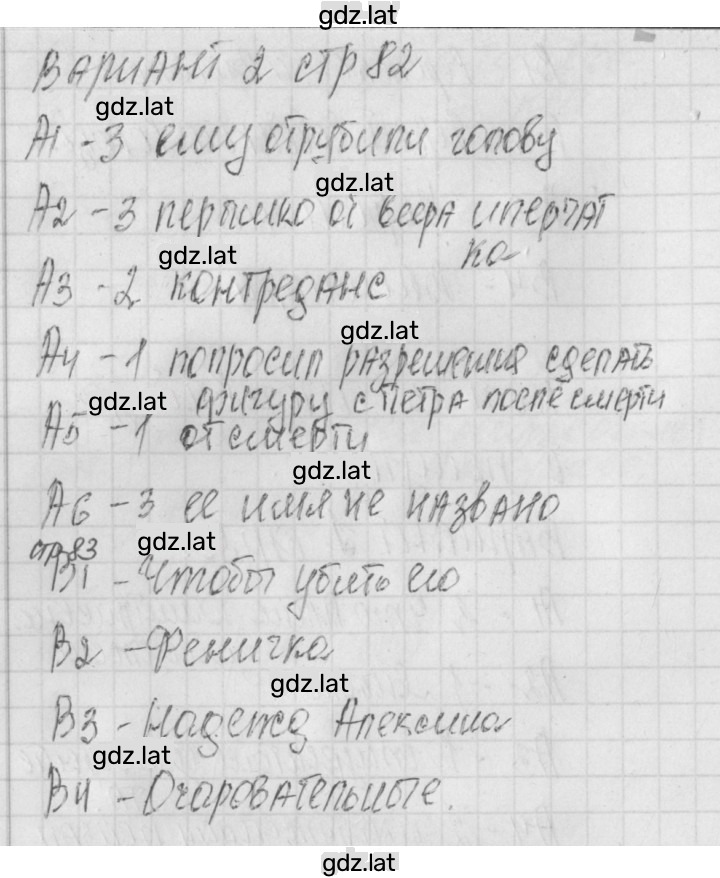 gdz.lat
Вариант 2 стр 82
gdz.lat
А1 - 3 ему отрубили голову
gdz.lat
А2 - 3 пёрышко от веера и перчат
ка
gdz.lat
А3 - 2 контреданс
gdz.lat
А4 - 1 попросил разрешения сделать
gdz.lat фигуру с Петра после смерти
А5 - 1 от смерти
gdz.lat
А6 - 3 ее имя не названо
стр 83 gdz.lat
В1 - Чтобы убить его
В2 - Феничка
gdz.lat
В3 - Надежд Алексина
gdz.lat
В4 - Очаровательные.
gdz.lat